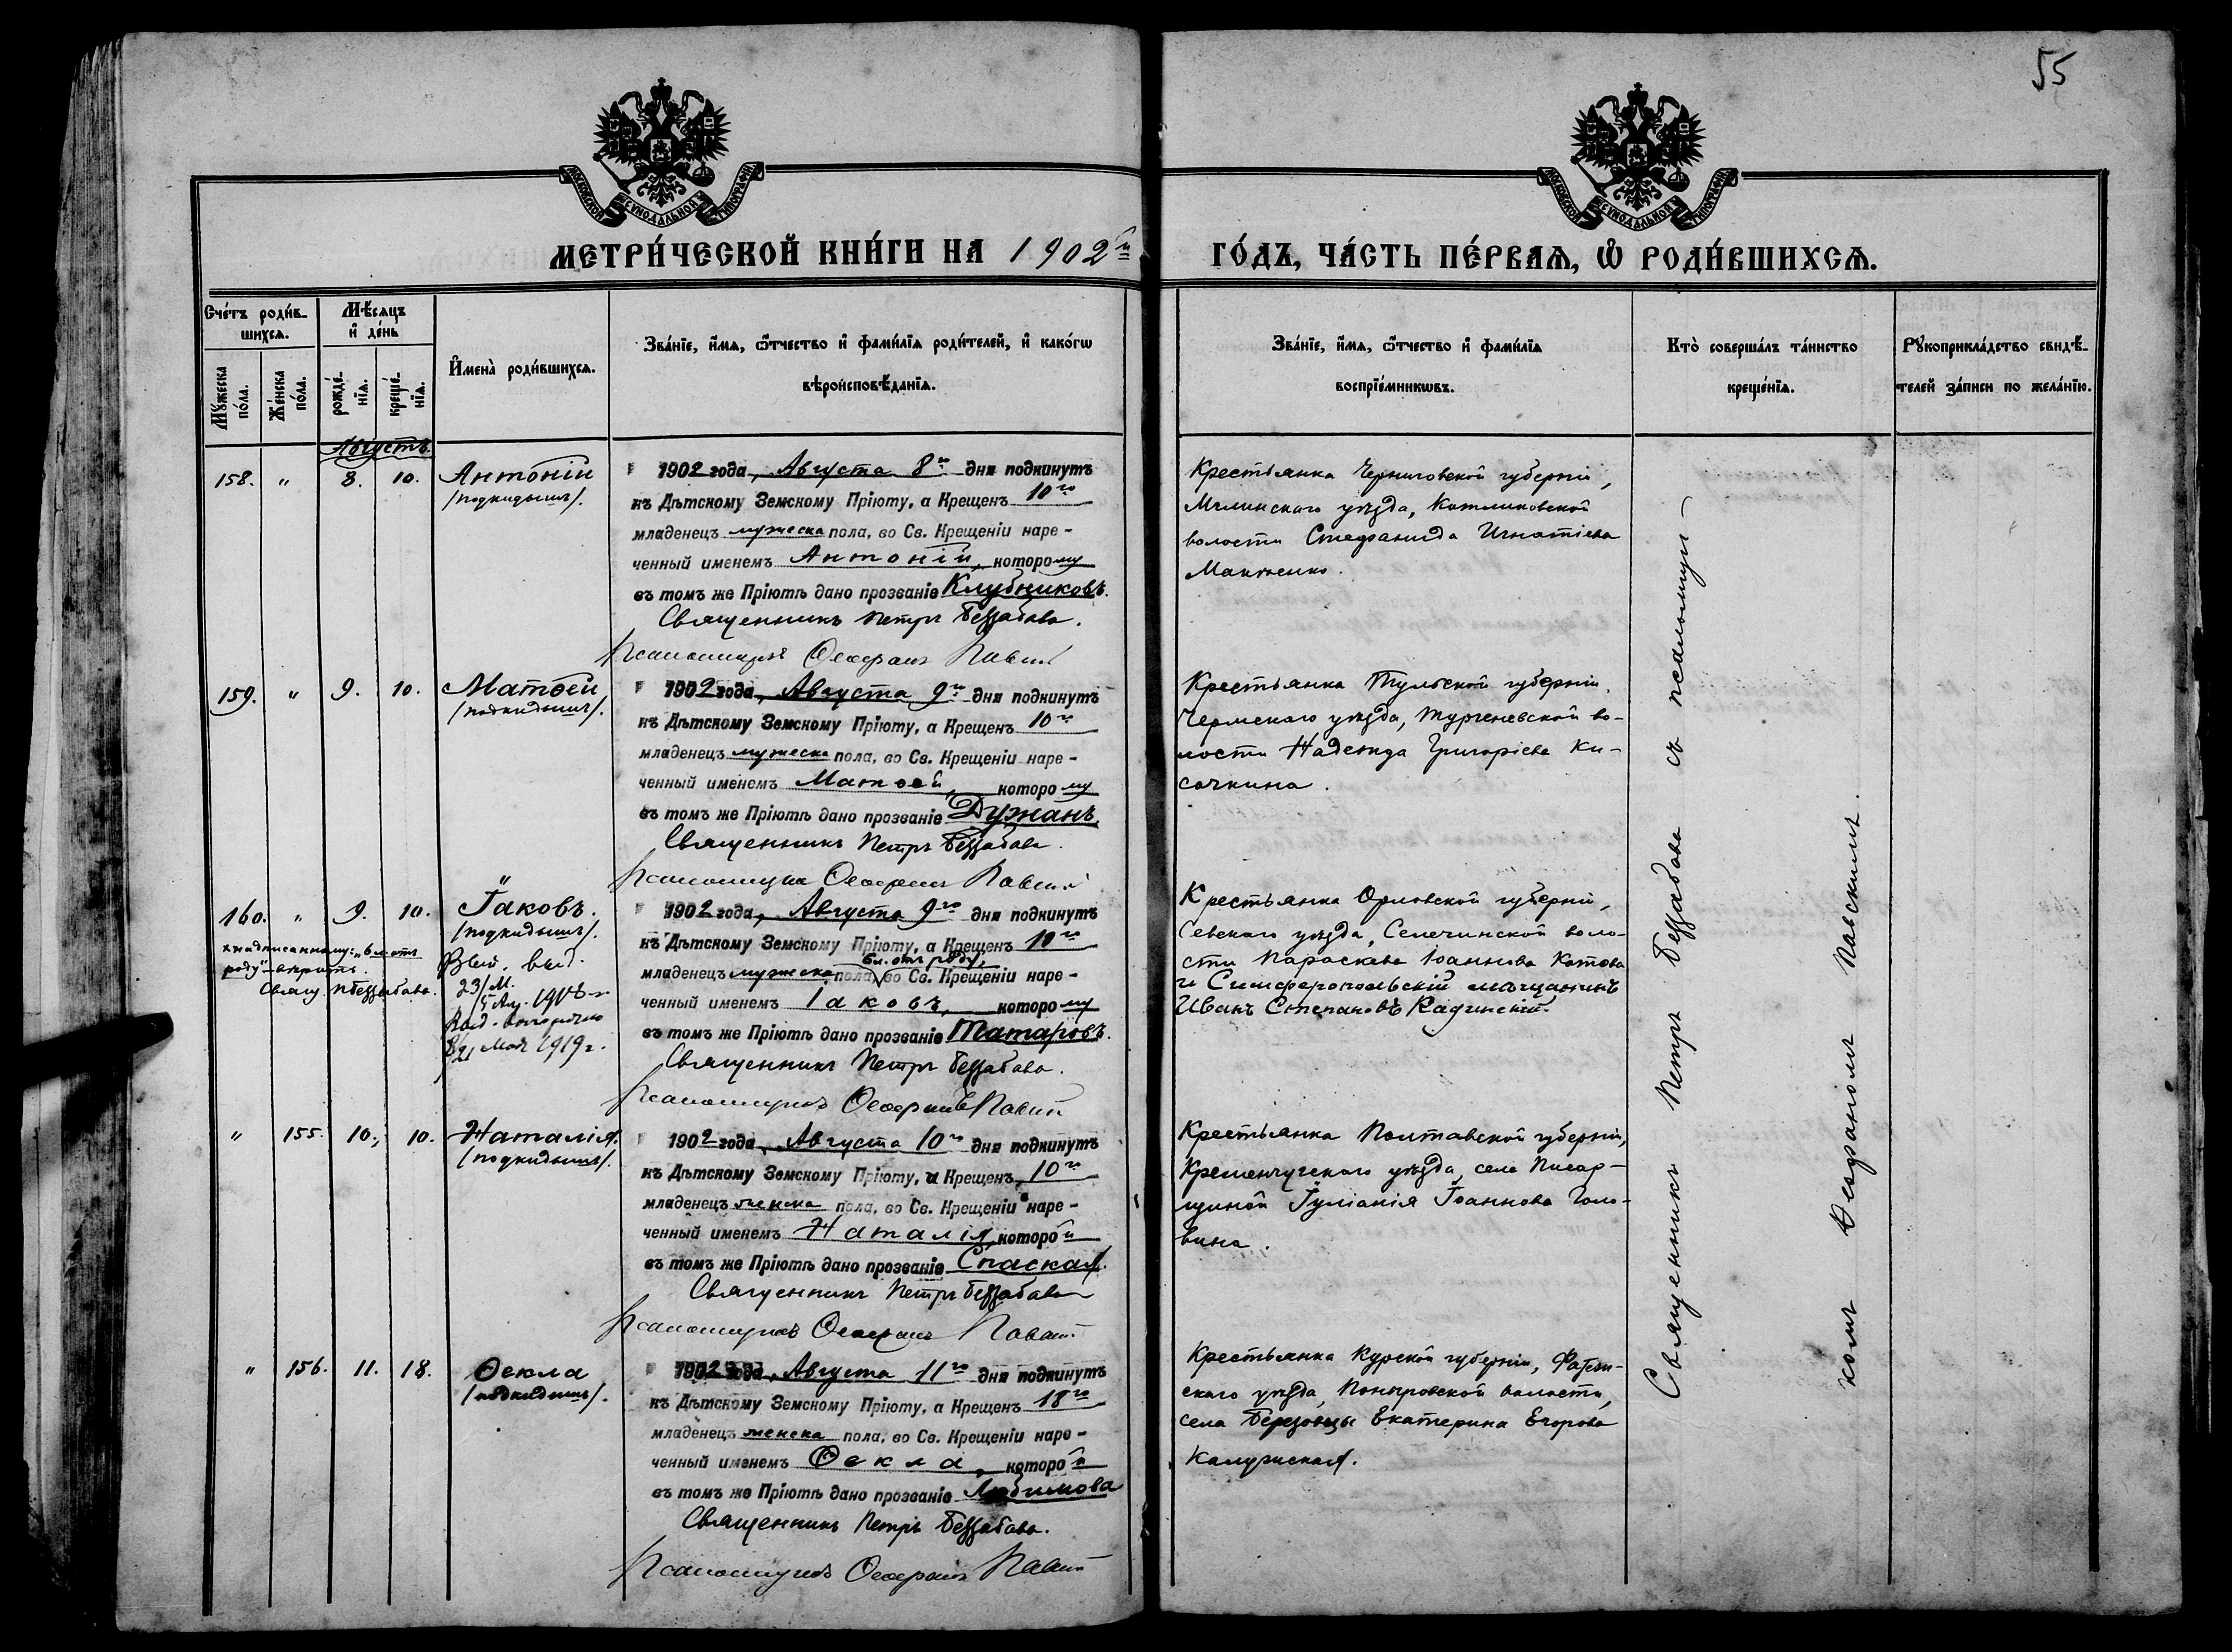 55
МОСКОВСКОЙ СУНОДАЛЬНОЙ ТИПОГРАФІИ
МОСКОВСКОЙ СУНОДАЛЬНОЙ ТИПОГРАФІИ
МЕТРИ́ЧЕСКОЙ КНИ́ГИ НА 1902й ГО́ДЪ, ЧА́СТЬ ПЕ́РВАѦ, Ѡ҆ РОДИ́ВШИХСѦ.
Сче́тъ роди́в-
шихсѧ.
Мꙋ́жеска по́ла.
Же́нска по́ла.
Мѣ́сѧцъ
и҆ де́нь
рожде́-
нїѧ.
креще́-
нїѧ.
И҆мена̀ роди́вшихсѧ.
Зва́нїе, и҆́мѧ, ѻ҆́тчество и҆ фами́лїѧ роди́телей, и҆ како́гѡ
вѣроисповѣ́данїѧ.
Зва́нїе, и҆́мѧ, ѻ҆́тчество и҆ фами́лїѧ
воспрїе́мникѡвъ.
Кто̀ соверша́лъ та́инство
креще́нїѧ.
Рꙋкоприкла́дство свидѣ́-
телей за́писи по жела́нїю.
Августъ.
158. " 8. 10. Антоній
/подкидышъ/.
1902 года, Августа 8го дня подкинутъ
къ Дѣтскому Земскому Пріюту, а Крещенъ 10го
младенецъ мужеска пола, во Св. Крещеніи наре-
ченный именемъ Антоній, которому
въ томъ же Пріютѣ дано прозваніе Клубниковъ.
Священникъ Петръ Беззабава.
Псаломщикъ Ѳеофанъ Павскій
Крестьянка Черниговской губерніи,
Мглинскаго уѣзда, Котляковской
волости Стефанида Игнатіева
159. " 9. 10. Матѳей
/подкидышъ/.
1902 года, Августа 9го дня подкинутъ
къ Дѣтскому Земскому Пріюту, а Крещенъ 10го
младенецъ мужеска пола, во Св. Крещеніи наре-
ченный именемъ Матѳей, которому
въ томъ же Пріютѣ дано прозваніе Дужанъ.
Священникъ Петръ Беззабава.
Псаломщикъ Ѳеофанъ Павскій
Крестьянка Тульской губерніи,
Чернскаго уѣзда, Тургеневской во-
лости Надежда Григоріева Ки-
сочкина.
160. " 9. 10. Іаковъ.
/подкидышъ/.
Выд. вып.
23/М.
21 Мая 1919 г.
къ надписанному: "6 л. отъ
роду" вѣрить.
Свящ. П. Беззабава.
1902 года, Августа 9го дня подкинутъ
къ Дѣтскому Земскому Пріюту, а Крещенъ 10го
6 л. отъ роду,
младенецъ мужеска пола, во Св. Крещеніи наре-
ченный именемъ Іаковъ, которому
въ томъ же Пріютѣ дано прозваніе Татаровъ.
Священникъ Петръ Беззабава.
Псаломщикъ Ѳеофанъ Павскій
Крестьянка Орловской губерніи,
Севскаго уѣзда, Селечинской воло-
сти Параскева Іоаннова Котова
и Симферопольскій мѣщанинъ
Иванъ Степановъ Радинскій.
" 155. 10. 10. Наталія.
/подкидышъ/.
1902 года, Августа 10го дня подкинутъ
къ Дѣтскому Земскому Пріюту, а Крещенъ 10го
младенецъ женска пола, во Св. Крещеніи наре-
ченный именемъ Наталія, которой
въ томъ же Пріютѣ дано прозваніе Спаская.
Священникъ Петръ Беззабава
Псаломщикъ Ѳеофанъ Павскій
Крестьянка Полтавской губерніи,
Кременчугскаго уѣзда, села Писар-
щиной Іуліанія Іоаннова Голо-
вина.
" 156. 11. 18. Ѳекла
/подкидышъ/.
1902 года, Августа 11го дня подкинутъ
къ Дѣтскому Земскому Пріюту, а Крещенъ 18го
младенецъ женска пола, во Св. Крещеніи наре-
ченный именемъ Ѳекла, которой
въ томъ же Пріютѣ дано прозваніе Любимова
Священникъ Петръ Беззабава.
Псаломщикъ Ѳеофанъ Павскій
Крестьянка Курской губерніи, Фатеж-
скаго уѣзда, Поныровской волости,
села Березовцы Екатерина Егорова
Калужская.
Священникъ Петръ Беззабава съ псаломщи-
комъ Ѳеофаномъ Павскимъ.